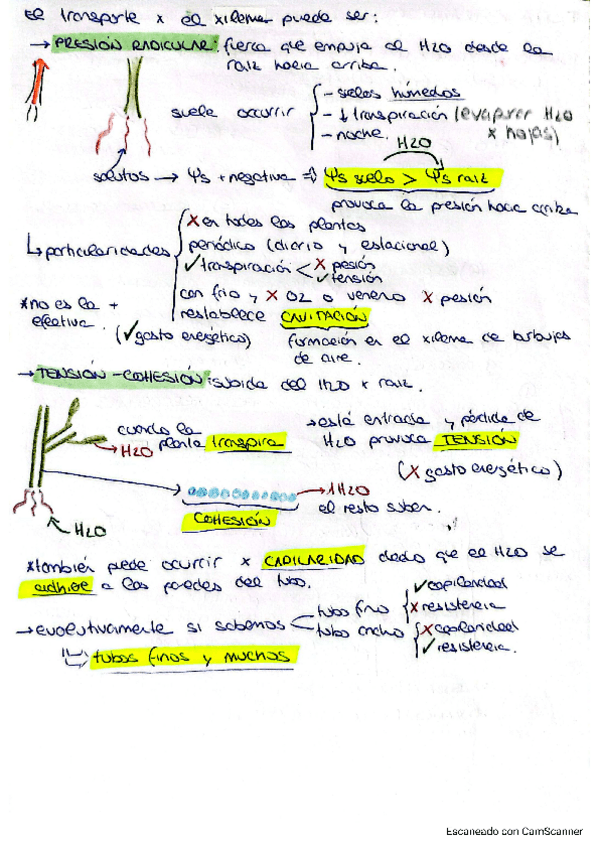 El transporte x el xilema puede ser:
→ PRESIÓN RADICULAR: fuerza que empuja al H2O desde la
raíz hacia arriba.
suele ocurrir
- suelos húmedos
- ↓ transpiración (evaporar H2O
x hojas)
- noche.
H2O
solutos → Ψs + negativa ⇒ Ψs suelo > Ψs raíz
provoca la presión hacia arriba
↳ particularidades
X en todas las plantas
periódico (diario y estacional)
✓ transpiración < X presión
✓ tensión
con frío y X O2 o veneno X presión
restablece CAVITACIÓN
formación en el xilema de burbujas
de aire.
*no es la +
efectiva.
(✓ gasto energético)
→ TENSIÓN-COHESIÓN: subida del H2O x raíz.
cuando la
planta transpira
→ H2O
→ esta entrada y pérdida de
H2O provoca TENSIÓN
(X gasto energético)
→ 1 H2O
el resto suben.
COHESIÓN
H2O
*también puede ocurrir x CAPILARIDAD dado que el H2O se
adhiere a las paredes del tubo.
→ evolutivamente si sabemos
tubo fino
✓ capilaridad
X resistencia
tubo ancho
X capilaridad
✓ resistencia.
tubos finos y muchos
Escaneado con CamScanner